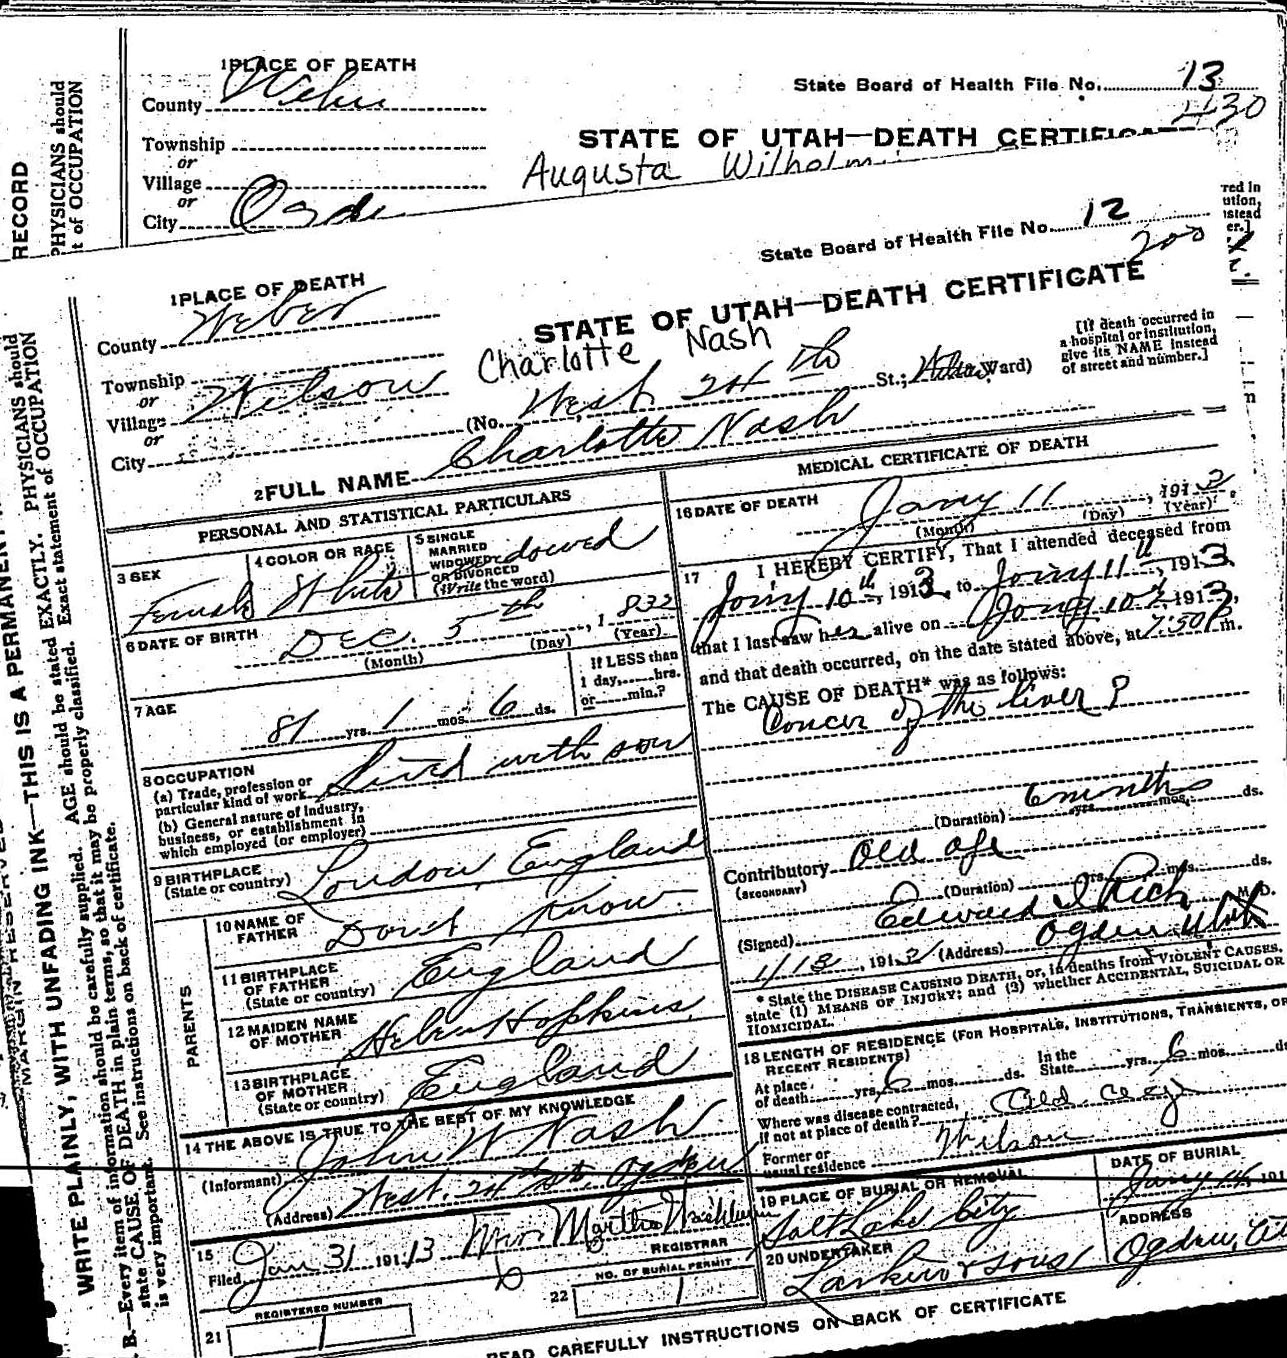 1 PLACE OF DEATH
County Weber
State Board of Health File No. 13
430
Township
or
STATE OF UTAH—DEATH CERTIFICATE
Village
or
Augusta Wilhelm
City Ogde
RECORD
PHYSICIANS should
t of OCCUPATION
red in
ution,
nstead
er.]
State Board of Health File No. 12
200
1 PLACE OF DEATH
County Weber
STATE OF UTAH—DEATH CERTIFICATE
Charlotte Nash
Township
or
Village Wilson
or
City
(No. West 24th St.; Ward)
[If death occurred in
a hospital or institution,
give its NAME instead
of street and number.]
2 FULL NAME Charlotte Nash
PERSONAL AND STATISTICAL PARTICULARS
3 SEX Female
4 COLOR OR RACE White
5 SINGLE
MARRIED
WIDOWED
OR DIVORCED
(Write the word)
dowed
6 DATE OF BIRTH
Dec. 5th, 1832
(Month) (Day) (Year)
7 AGE
81 yrs. 1 mos. 6 ds.
If LESS than
1 day, hrs.
or min.?
8 OCCUPATION
(a) Trade, profession or
particular kind of work Lived with son
(b) General nature of industry,
business, or establishment in
which employed (or employer)
9 BIRTHPLACE
(State or country) London, England
PARENTS
10 NAME OF
FATHER Dont Know.
11 BIRTHPLACE
OF FATHER
(State or country) England
12 MAIDEN NAME
OF MOTHER Helen Hopkins
13 BIRTHPLACE
OF MOTHER
(State or country) England
14 THE ABOVE IS TRUE TO THE BEST OF MY KNOWLEDGE
(Informant) John W Nash
(Address) West. 24th St. Ogden
15
Filed Jan 31 1913 Martha
REGISTRAR
21 REGISTERED NUMBER
1
22 NO. OF BURIAL PERMIT
1
MEDICAL CERTIFICATE OF DEATH
16 DATE OF DEATH
Jany 11, 1913.
(Month) (Day) (Year)
17 I HEREBY CERTIFY, That I attended deceased from
Jany 10th, 1913, to Jany 11th, 1913.
that I last saw her alive on Jany 10th, 1913,
and that death occurred, on the date stated above, at 7:30 P. m.
The CAUSE OF DEATH* was as follows:
Cancer of the liver?
(Duration) 6 months yrs. mos. ds.
Contributory Old age
(SECONDARY)
(Duration) yrs. mos. ds.
(Signed) Edward I Rich M.D.
1/13, 1913 (Address) Ogden Utah
* State the DISEASE CAUSING DEATH, or, in deaths from VIOLENT CAUSES,
state (1) MEANS OF INJURY; and (2) whether ACCIDENTAL, SUICIDAL OR
HOMICIDAL.
18 LENGTH OF RESIDENCE (FOR HOSPITALS, INSTITUTIONS, TRANSIENTS, OR
RECENT RESIDENTS)
At place
of death yrs. 6 mos. ds.
In the
State yrs. 6 mos. ds
Where was disease contracted,
if not at place of death? Old age
Former or
usual residence Wilson
19 PLACE OF BURIAL OR REMOVAL
Salt Lake City
DATE OF BURIAL
Jany 14, 191
20 UNDERTAKER
Larkin & Sons
ADDRESS
Ogden,
READ CAREFULLY INSTRUCTIONS ON BACK OF CERTIFICATE
MARGIN RESERVED
WRITE PLAINLY, WITH UNFADING INK—THIS IS A PERMANENT
B.—Every item of information should be carefully supplied. AGE should be stated EXACTLY. PHYSICIANS should
state CAUSE OF DEATH in plain terms, so that it may be properly classified. Exact statement of OCCUPATION
is very important. See instructions on back of certificate.